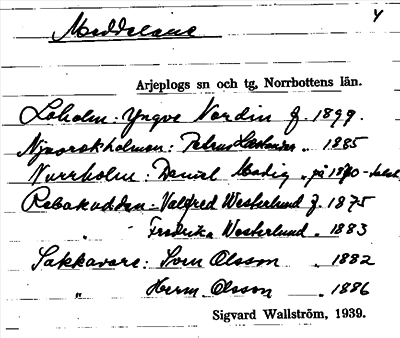 Meddelare
4
Arjeplogs sn och tg, Norrbottens län.
Loholm: Yngve Nordin f. 1899.
Njavrokholmen: Petrus " 1885
Norrholm: Daniel Modig " på 1870-talet
Rebakudden: Valfred Westerlund f. 1875
" " Fredrika Westerlund " 1883
Sakkavare: Sven Olsson " 1882
" Herm. Olsson " 1886
Sigvard Wallström, 1939.